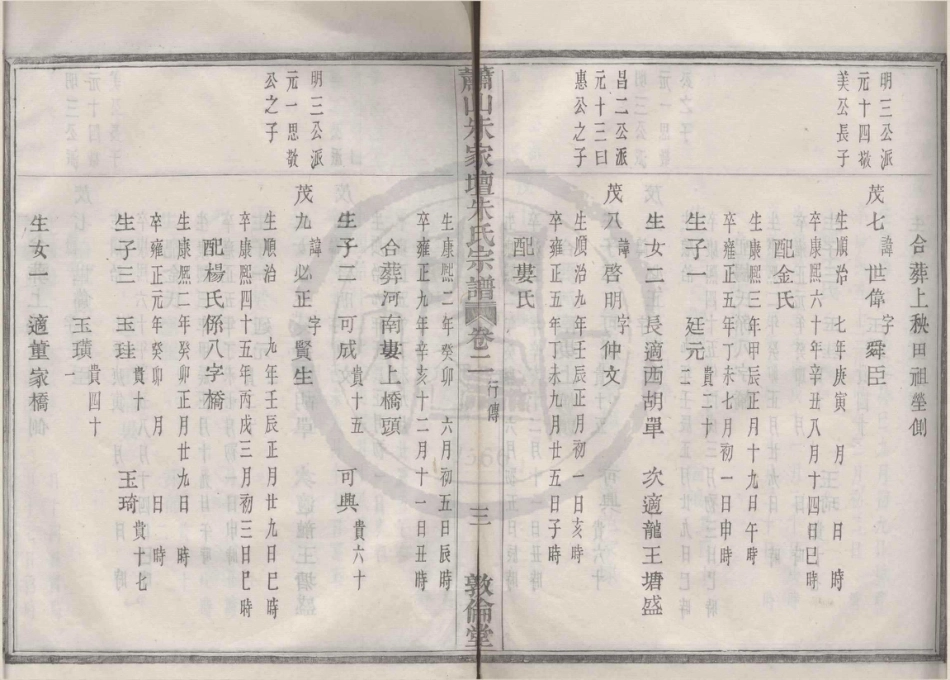 合葬上秧田祖塋側
明三公派
元十四敬
美公長子
茂七 諱世偉 字舜臣
生順治 七年庚寅 月 日 時
卒康熙六十年辛丑八月十四日巳時
配金氏
生康熙三年甲辰正月十九日午時
卒雍正五年丁未七月初一日申時
生子一 廷元 貴二十
生女二 長適西胡單 次適龍王塘盛
昌二公派
元十三曰
惠公之子
茂八 諱啓明 字仲文
生順治九年壬辰正月初一日亥時
卒雍正五年丁未九月廿五日子時
配婁氏
蕭山朱家壇朱氏宗譜 卷二 行傳 三 敦倫堂
生康熙二年癸卯 六月初五日辰時
卒雍正九年辛亥十二月十一日丑時
合葬河南婁上橋頭
生子二 可成 貴十五 可典 貴六十
明三公派
元一思敬
公之子
茂九 諱必正 字賢生
生順治 九年壬辰正月廿九日巳時
卒康熙四十五年丙戌三月初三日巳時
配楊氏係八字橋
生康熙二年癸卯正月廿九日 時
卒雍正元年癸卯 月 日 時
生子三 玉珪 貴十一 玉琦 貴十七
玉璜 貴四十
生女一 適董家橋